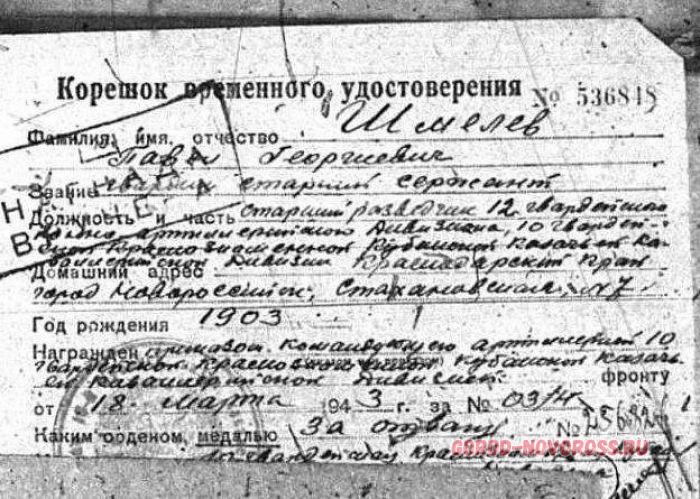 Корешок временного удостоверения № 536848
Фамилия, имя, отчество Шмелев
Павел Георгиевич
Звание гвардии старший сержант
Должность и часть старший разведчик 12 гвардейского
конно артиллерийского дивизиона, 10 гвардей-
ской Краснознаменной Кубанской казачьей ка-
валерийской дивизии
Домашний адрес Краснодарский край
город Новороссийск, Стахановская, 7
Год рождения 1903
Награжден приказом командующего артиллерией 10
гвардейской Краснознаменной Кубанской казачь-
ей кавалерийской дивизии фронту
от 18 марта 1943 г. за № 03/н
Каким орденом, медалью За отвагу №
GOROD-NOVOROSS.RU